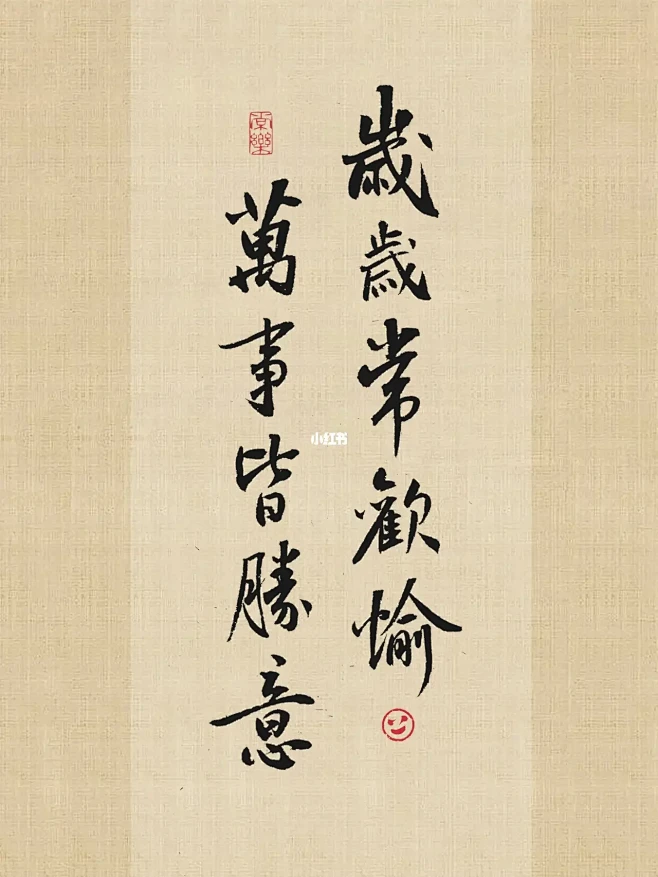 歲歲常歡愉
萬事皆勝意
小红书